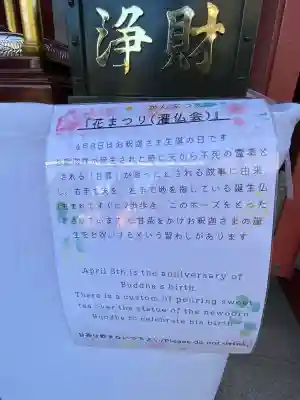 浄財
かんぶつえ
『花まつり(灌仏会)』
4月8日はお釈迦さま生誕の日です
お釈迦様が誕生された際に天から不死の霊薬と
される「甘露」が降ったとされる故事に由来
し、右手で天を 左手で地を指している誕生仏
甘茶をかけお釈迦さまの誕
生をお祝いするという習わしがあります
April 8th is the anniversary of
Buddha's birth.
There is a custom of pouring sweet
tea over the statue of the newborn
Buddha to celebrate his birth.
甘茶は飲まないで下さい/Please do not drink.